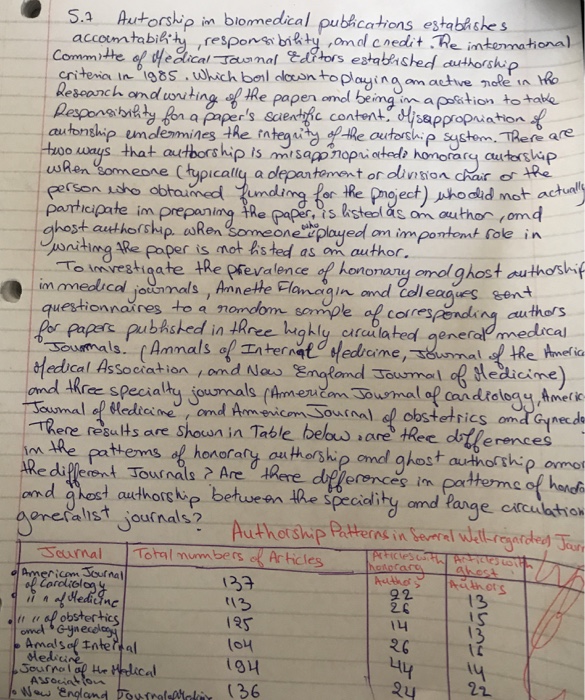 5.7 Autorship in biomedical publications establishes
accountability, responsibility, and credit. The international
Committe of Medical Journal Editors established authorship
criteria in 1985. Which boil down to playing an active role in the
Research and writing of the paper and being in a position to take
Responsibility for a paper's scientific content. Misappropriation of
autorship undermines the integrity of the autorship system. There are
two ways that authorship is misappropriated: honorary autorship
when someone (typically a departement or division chair or the
person who obtained funding for the project) who did not actually
participate in preparing the paper, is listed as an author, and
ghost authorship. when someone who played an important role in
writing the paper is not listed as an author.
To investigate the prevalence of honorary and ghost authorship
in medical journals, Annette Flanagin and colleagues sent
questionnaires to a random sample of corresponding authors
for papers published in three highly circulated general medical
Journals. (Annals of Internal Medicine, Journal of the Americ
Medical Association, and New England Journal of Medicine)
and three specialty journals (American Journal of cardiology, Americ
Journal of Medicine, and American Journal of obstetrics and Gyneco
There results are shown in Table below. are thee differences
in the patterns of honorary authorship and ghost authorship amo
the different Journals? Are there differences in patterns of honor
and ghost authorship between the speciality and large circulation
generalist journals?
Authorship Patterns in Several Well-regarded Jour
Journal Total numbers of Articles Articles with honorary Authors Articles with ghost Authors
American Journal of Cardiology 137 22 13
" " of Medicine 113 26 15
" " of obstertics and Gynecology 125 14 13
Annals of Internal Medicine 104 26 16
Journal of the Medical Association 194 44 14
New England Journal 136 24 22